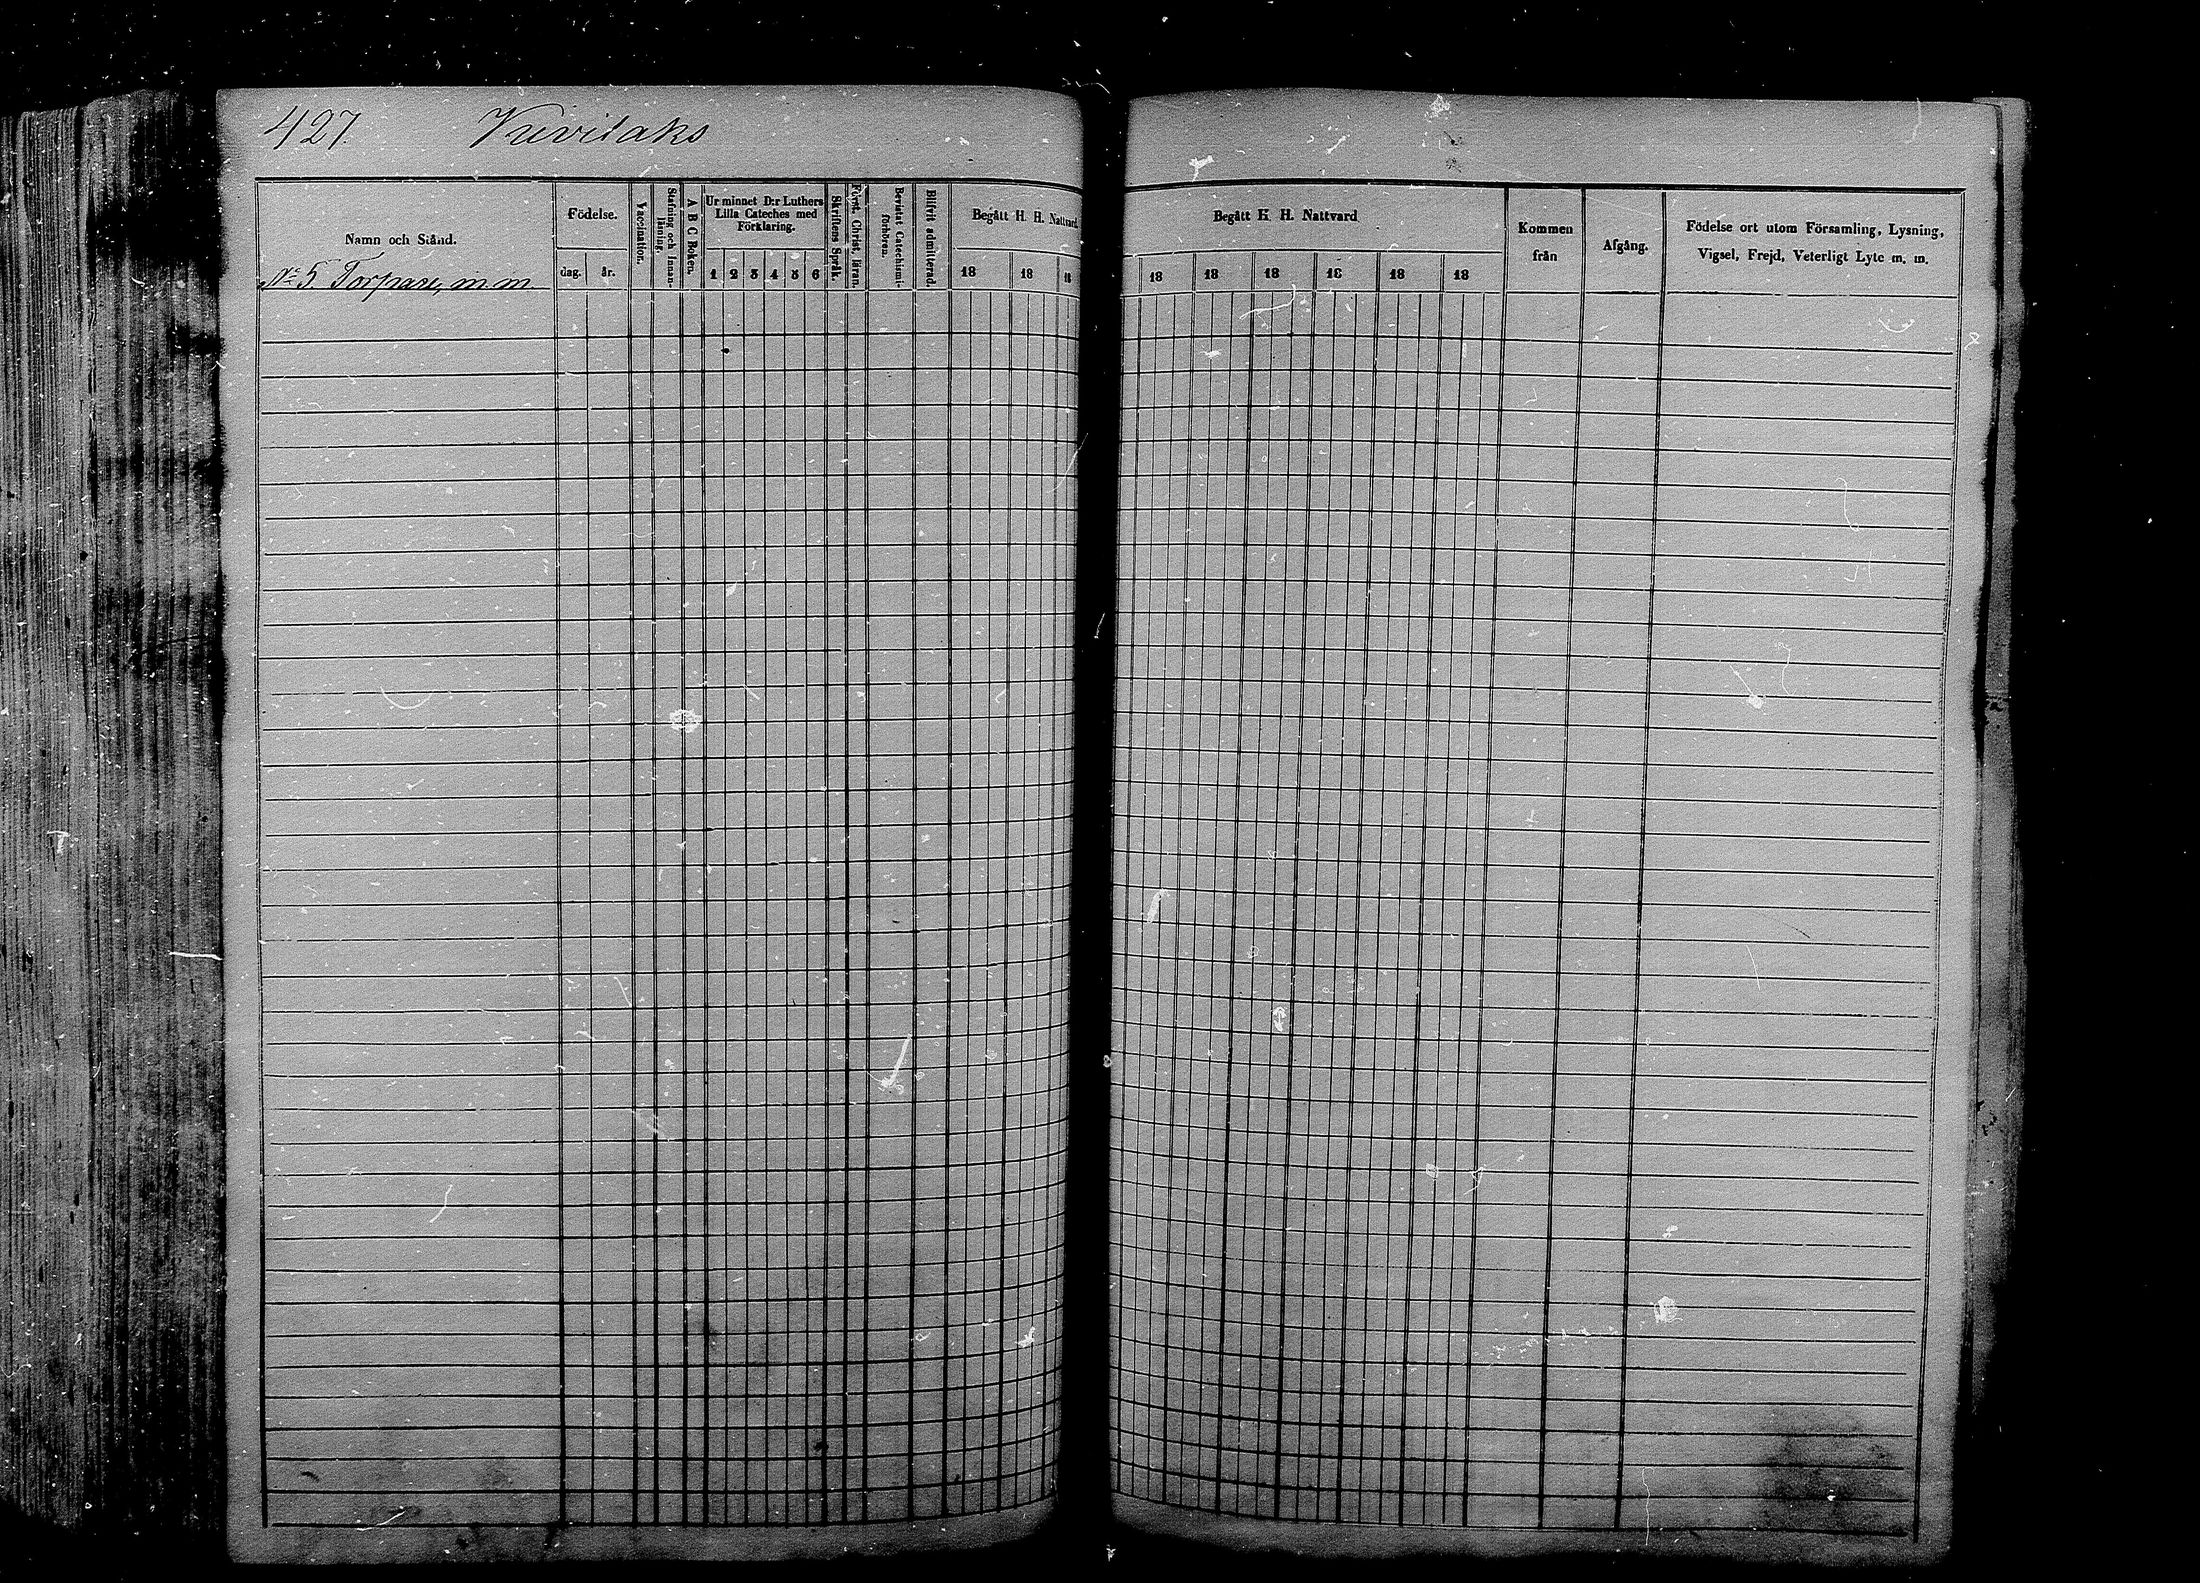 427. Vuvilaks
Namn och Stånd.
No 5 Torpare, m. m.
Födelse.
dag. år.
Vaccination.
Stafning och Innanläsning.
A B C Boken.
Ur minnet D:r Luthers
Lilla Cateches med
Förklaring.
1 2 3 4 5 6
Skriftens Språk.
Först. Christ. läran.
Bevistat Catechismiförhören.
Blifvit admitterad.
Begått H. H. Nattvard.
18 18 18
Begått H. H. Nattvard
18 18 18 18 18 18
Kommen
från
Afgång.
Födelse ort utom Församling, Lysning,
Vigsel, Frejd, Veterligt Lyte m. m.